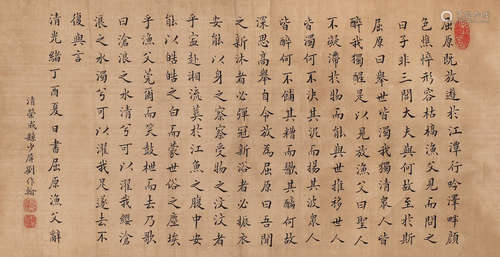 屈原既放遊於江潭行吟澤畔顏
色憔悴形容枯槁漁父見而問之
曰子非三閭大夫與何故至於斯
屈原曰舉世皆濁我獨清衆人皆
醉我獨醒是以見放漁父曰聖人
不凝滯於物而能與世推移世人
皆濁何不淈其泥而揚其波衆人
皆醉何不餔其糟而歠其醨何故
深思高舉自令放為屈原曰吾聞
之新沐者必彈冠新浴者必振衣
安能以身之察察受物之汶汶者
乎寧赴湘流葬於江魚之腹中安
能以皓皓之白而蒙世俗之塵埃
乎漁父莞爾而笑鼓枻而去乃歌
曰滄浪之水清兮可以濯我纓滄
浪之水濁兮可以濯我足遂去不
復與言
清光緒丁酉夏日書屈原漁父辭
清榮成縣少庠劉作翰